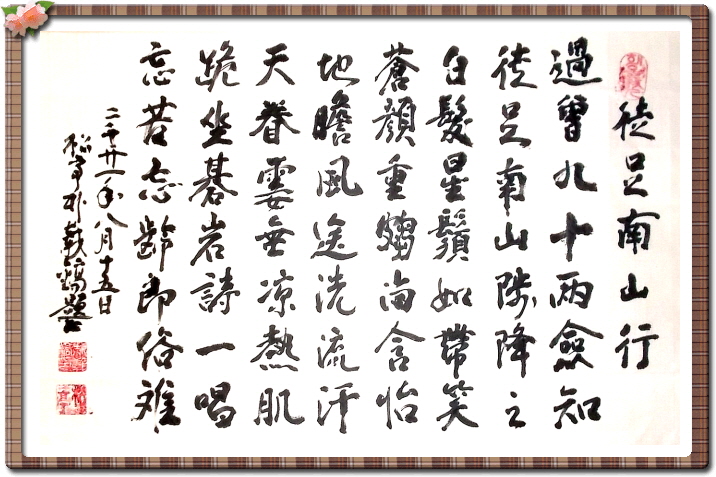 徒足南山行
過曾九十兩僉知
徒足南山陟降之
白髮星鬚如帶笑
蒼顔重皺面含怡
地瞻風送洗流汗
天眷雲垂凉熱肌
跪坐碁岩詩一唱
忘苦忘齡即俗離
二千廿一年八月十五日
松亭朴